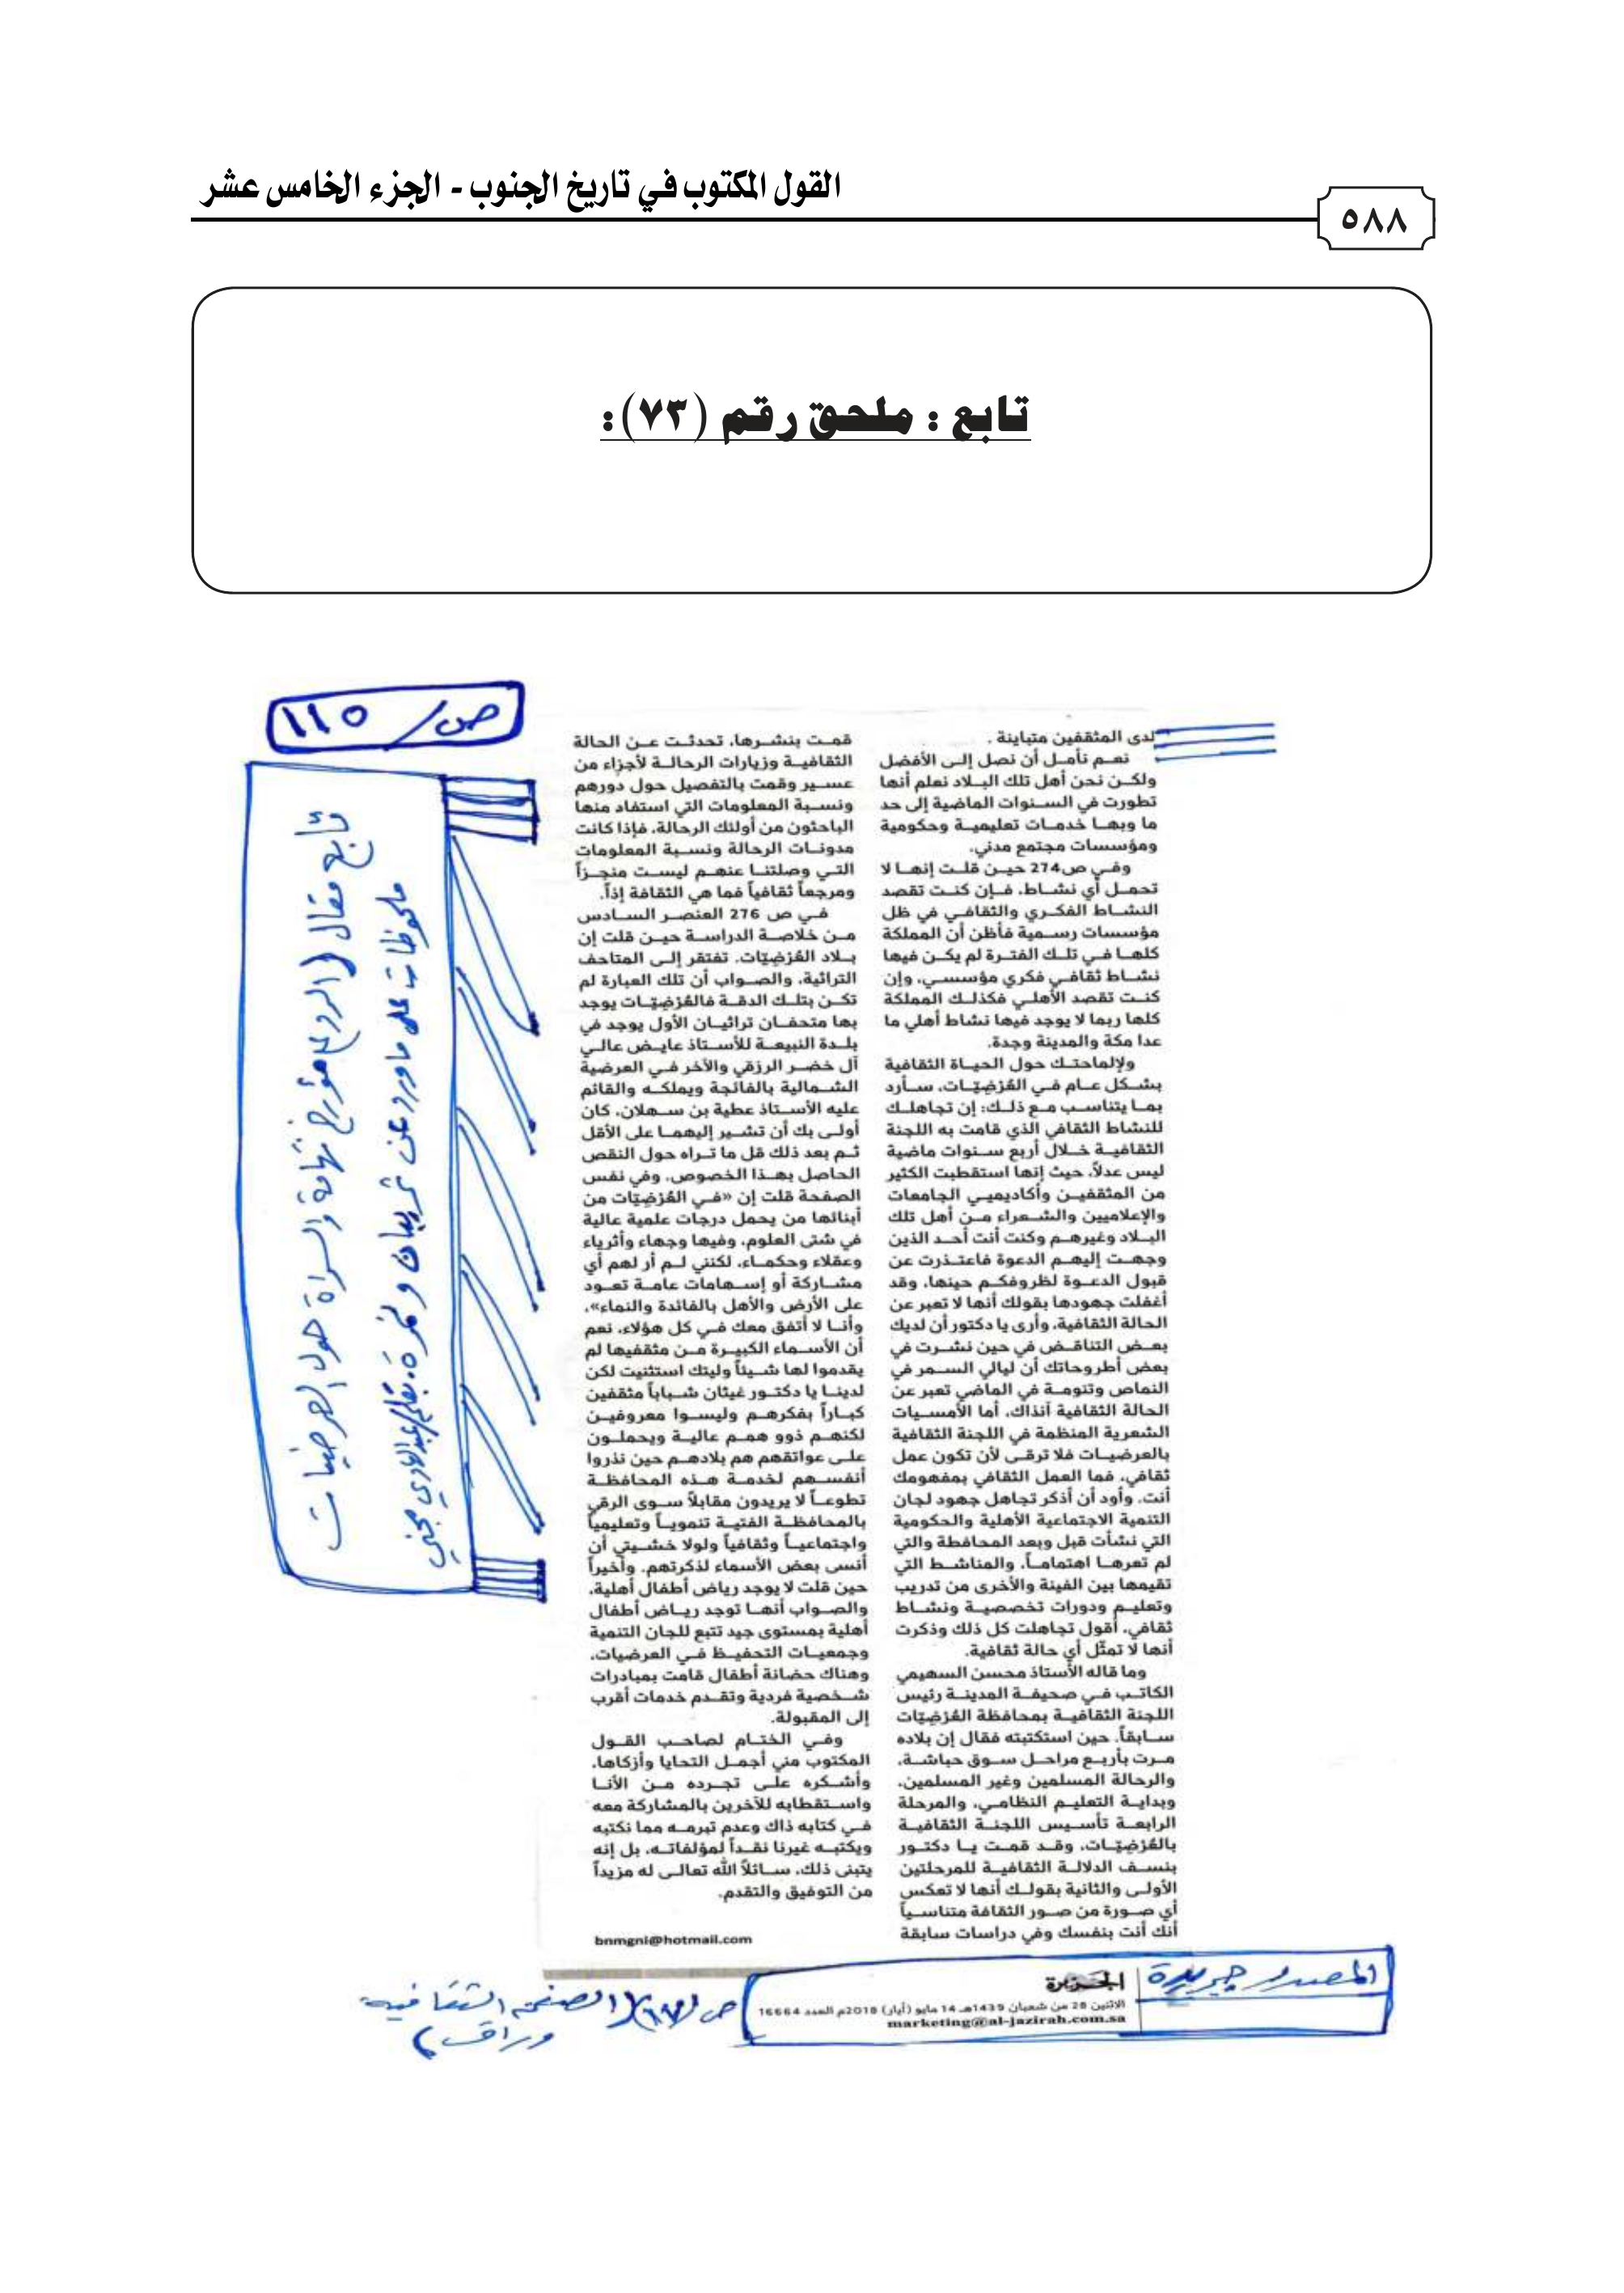 القول المكتوب في تاريخ الجنوب - الجزء الخامس عشر
٥٨٨
تابع : ملحق رقم (٧٣):
ص/ ١١٥
تابع مقال (الرد على مؤرخ تهامة والسراة حول العرضيات
ملحوظات على ما ورد عن ثريبان ونمرة، بقلم عبدالهادي مجني
لدى المثقفين متباينة .
نعـم نأمـل أن نصل إلـى الأفضل
ولكـن نحن أهل تلك البـلاد نعلم أنها
تطورت في السـنوات الماضية إلى حد
ما وبهـا خدمـات تعليميـة وحكومية
ومؤسسات مجتمع مدني.
وفـي ص274 حيـن قلـت إنهـا لا
تحمـل أي نشـاط، فـإن كنـت تقصد
النشـاط الفكـري والثقافـي في ظل
مؤسسات رسـمية فأظن أن المملكة
كلهـا فـي تلـك الفتـرة لم يكـن فيها
نشـاط ثقافـي فكري مؤسسـي، وإن
كنـت تقصد الأهلـي فكذلـك المملكة
كلها ربما لا يوجد فيها نشاط أهلي ما
عدا مكة والمدينة وجدة.
ولإلماحتـك حول الحيـاة الثقافية
بشـكل عـام في العُرْضِيّـات، سـأرد
بمـا يتناسـب مـع ذلـك: إن تجاهلـك
للنشـاط الثقافي الذي قامت به اللجنة
الثقافيـة خـلال أربع سـنوات ماضية
ليس عدلاً، حيث إنها استقطبت الكثير
من المثقفيـن وأكاديميـي الجامعات
والإعلاميين والشـعراء مـن أهل تلك
البـلاد وغيرهـم وكنت أنت أحـد الذين
وجهـت إليهـم الدعوة فاعتـذرت عن
قبول الدعـوة لظروفكـم حينها، وقد
أغفلت جهودها بقولك أنها لا تعبر عن
الحالة الثقافية، وأرى يا دكتور أن لديك
بعـض التناقـض في حين نشـرت في
بعض أطروحاتك أن ليالي السـمر في
النماص وتنومـة في الماضي تعبر عن
الحالة الثقافية آنذاك، أما الأمسـيات
الشعرية المنظمة في اللجنة الثقافية
بالعرضيـات فلا ترقـى لأن تكون عمل
ثقافي، فما العمل الثقافي بمفهومك
أنت، وأود أن أذكر تجاهل جهود لجان
التنمية الاجتماعية الأهلية والحكومية
التي نشأت قبل وبعد المحافظة والتي
لم تعرهـا اهتمامـاً، والمناشـط التي
تقيمها بين الفينة والأخرى من تدريب
وتعليـم ودورات تخصصيـة ونشـاط
ثقافي، أقول تجاهلت كل ذلك وذكرت
أنها لا تمثّل أي حالة ثقافية.
وما قاله الأستاذ محسن السهيمي
الكاتـب فـي صحيفـة المدينـة رئيس
اللجنة الثقافيـة بمحافظة العُرْضِيّات
سـابقاً، حين استكتبته فقال إن بلاده
مـرت بأربـع مراحـل سـوق حباشـة،
والرحالة المسلمين وغير المسلمين،
وبدايـة التعليـم النظامـي، والمرحلة
الرابعـة تأسـيس اللجنـة الثقافيـة
بالعُرْضِيّـات، وقـد قمـت يـا دكتـور
بنسـف الدلالـة الثقافيـة للمرحلتين
الأولـى والثانية بقولـك أنها لا تعكس
أي صـورة من صـور الثقافة متناسـياً
أنك أنت بنفسك وفي دراسات سابقة
قمـت بنشـرها، تحدثـت عـن الحالة
الثقافيـة وزيارات الرحالـة لأجزاء من
عسـير وقمت بالتفصيل حول دورهم
ونسـبة المعلومات التي استفاد منها
الباحثون من أولئك الرحالة، فإذا كانت
مدونـات الرحالة ونسـبة المعلومات
التـي وصلتنـا عنهـم ليسـت منجـزاً
ومرجعاً ثقافياً فما هي الثقافة إذاً.
فـي ص 276 العنصـر السـادس
مـن خلاصـة الدراسـة حيـن قلت إن
بـلاد العُرْضِيّات، تفتقر إلـى المتاحف
التراثية، والصـواب أن تلك العبارة لم
تكـن بتلـك الدقـة فالعُرْضِيّـات يوجد
بها متحفـان تراثيـان الأول يوجد في
بلـدة النبيعـة للأسـتاذ عايـض عالـي
آل خضـر الرزقي والآخر فـي العرضية
الشـمالية بالفائجة ويملكـه والقائم
عليه الأسـتاذ عطية بن سـهلان، كان
أولـى بك أن تشـير إليهمـا على الأقل
ثـم بعد ذلك قل ما تـراه حول النقص
الحاصل بهـذا الخصوص، وفي نفس
الصفحة قلت إن «فـي العُرْضِيّات من
أبنائها من يحمل درجات علمية عالية
في شتى العلوم، وفيها وجهاء وأثرياء
وعقلاء وحكمـاء، لكنني لـم أر لهم أي
مشـاركة أو إسـهامات عامـة تعـود
على الأرض والأهل بالفائدة والنماء»،
وأنـا لا أتفق معك فـي كل هؤلاء، نعم
أن الأسـماء الكبيـرة مـن مثقفيها لم
يقدموا لها شـيئاً وليتك استثنيت لكن
لدينـا يا دكتـور غيثان شـباباً مثقفين
كبـاراً بفكرهـم وليسـوا معروفيـن
لكنهـم ذوو همـم عاليـة ويحملـون
علـى عواتقهم هم بلادهـم حين نذروا
أنفسـهم لخدمـة هـذه المحافظـة
تطوعـاً لا يريدون مقابلاً سـوى الرقي
بالمحافظـة الفتيـة تنمويـاً وتعليمياً
واجتماعيـاً وثقافياً ولولا خشـيتي أن
أنسى بعض الأسماء لذكرتهم. وأخيراً
حين قلت لا يوجد رياض أطفال أهلية،
والصـواب أنهـا توجد ريـاض أطفال
أهلية بمستوى جيد تتبع للجان التنمية
وجمعيـات التحفيـظ فـي العرضيات،
وهناك حضانة أطفال قامت بمبادرات
شـخصية فردية وتقـدم خدمات أقرب
إلى المقبولة.
وفـي الختـام لصاحـب القـول
المكتوب مني أجمـل التحايا وأزكاها،
وأشـكره علـى تجـرده مـن الأنـا
واسـتقطابه للآخرين بالمشاركة معه
فـي كتابه ذاك وعدم تبرمـه مما نكتبه
ويكتبـه غيرنا نقـداً لمؤلفاتـه، بل إنه
يتبنى ذلك، سـائلاً الله تعالـى له مزيداً
من التوفيق والتقدم.
bnmgni@hotmail.com
المصدر جريدة
الجزيرة
الاثنين 28 من شعبان 1439هـ 14 مايو (أيار) 2018م العدد 16664
marketing@al-jazirah.com.sa
الصفحة الثقافية
وراق)